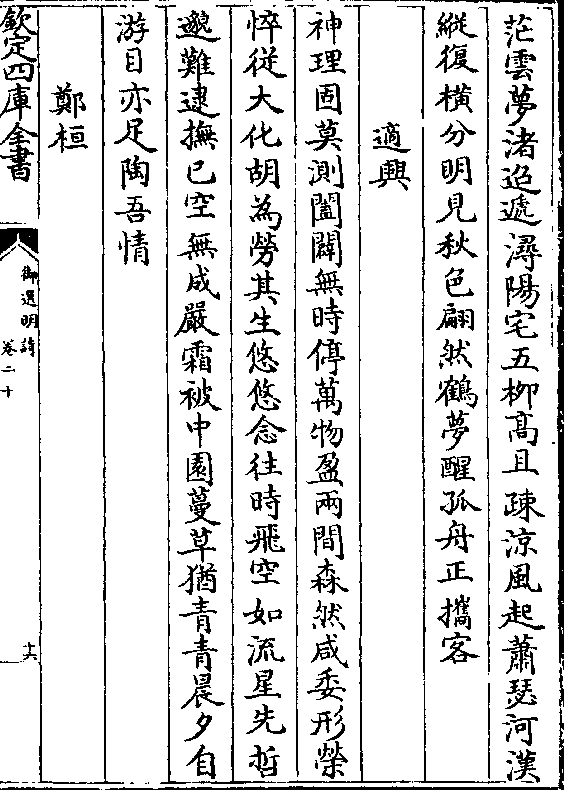 茫雲夢渚迢遞潯陽宅五柳髙且疎涼風起蕭瑟河漢
縱復橫分明見秋色翩然鶴夢醒孤舟正攜客
適興
神理固莫測闔闢無時停萬物盈兩間森然咸委形榮
悴從大化胡為勞其生悠悠念往時飛空如流星先哲
邈難逮撫已空無成嚴霜被中園蔓草猶青青晨夕自
游目亦足陶吾情
鄭桓
欽定四庫全書
御選明詩
卷二十
十六